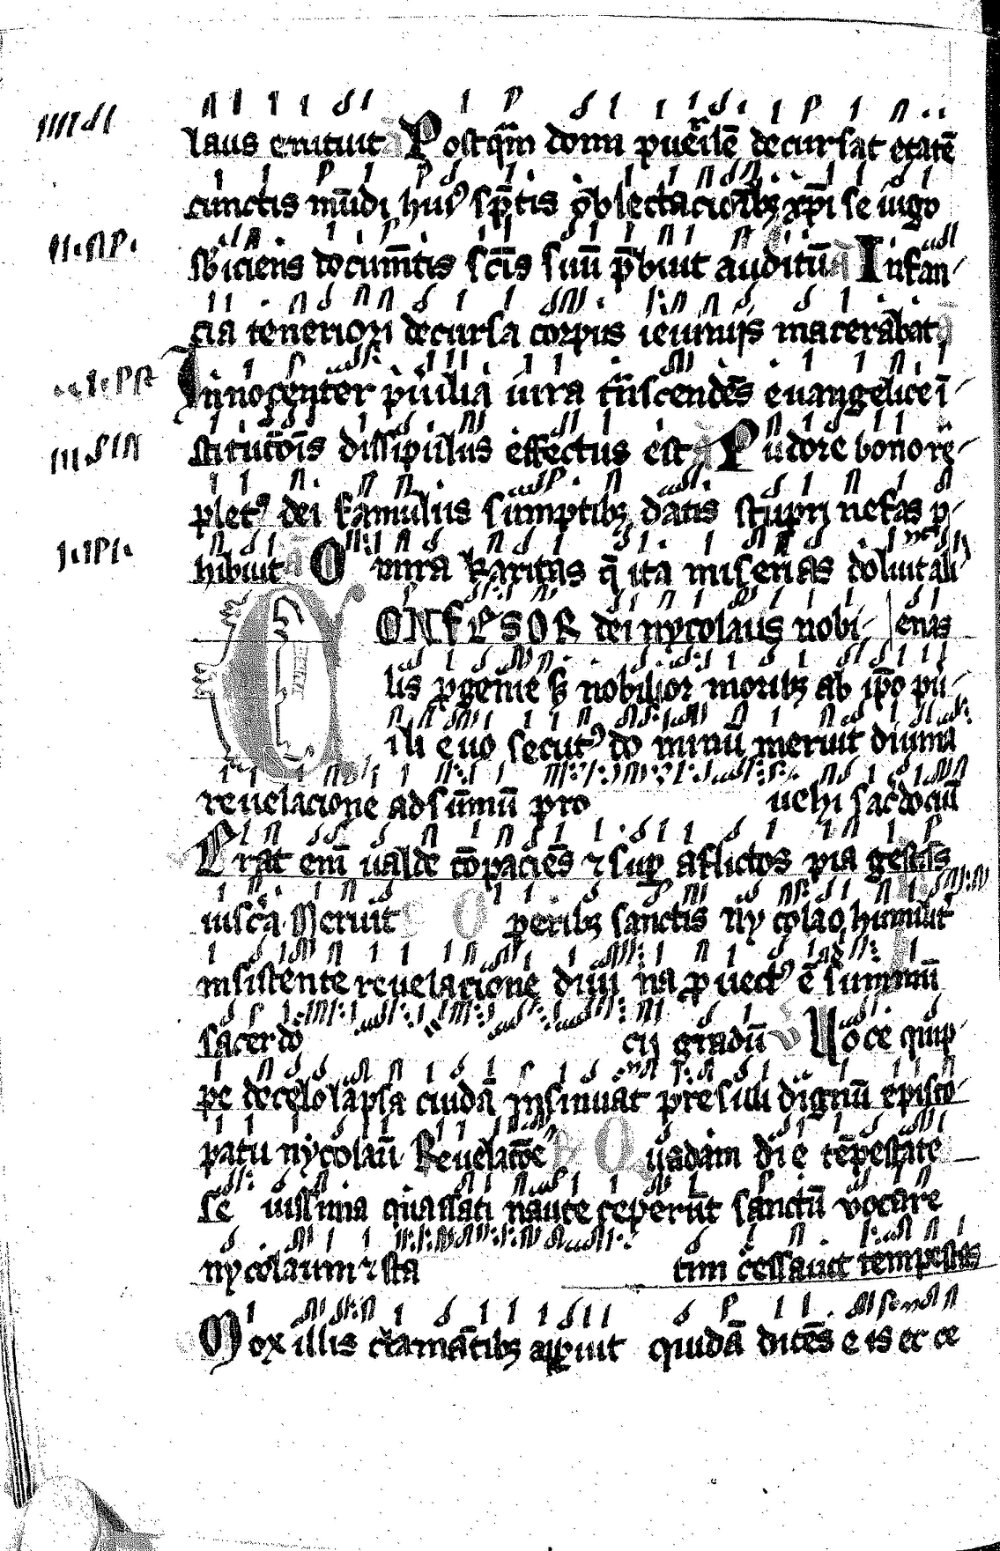 laus enituit Postq̄m domi pueͬilē decursat etatē
cunctis mūdi huiꝰ sp̄tis oblectacioībꝫ xp̄i se iugo
sbiciens docum̄tis scīs suū p̄buit auditū Infan-
cia teneriori decursa corpus ieiuniis macerabat
Innocenter puilia iura trāscendēs evangelice ī-
stitucōis dissipulus effectus est Pudore bono re-
pletꝰ dei famulus sumptibꝫ datis stupri nefas p-
hibuit O mira karitas q̄ ita miserias doluit ali-
CONFESOR dei nycolaus nobi- enas
lis pgenie sꝫ nobilior moribꝫ ab ip̄o pu-
ili evo secutꝰ do minū meruit diuina
reuelacione ad sūmū pro uehi sac̄dociū
Erat enī ualde cōpaciēs ⁊ suꝑ aflictos pia gestās
uiscͣa Meruit Operibꝫ sanctis ny colao humilit̄
insistente reuelacione diui na ꝓuectꝰ ē summū
sacerdo cij gradū v Uoce quip-
pe de celo lapsa cuidā insinuat presuli dignū episco-
patu nycolaū Reuelacōe Quadam die tēpestate
se uissima quassati naute ceperūt sanctū vocare
nycolaum ⁊ sta tim c̄essauit tempestas
Mox illis clamātibꝫ aꝑuit quidā dicēs eis ecce